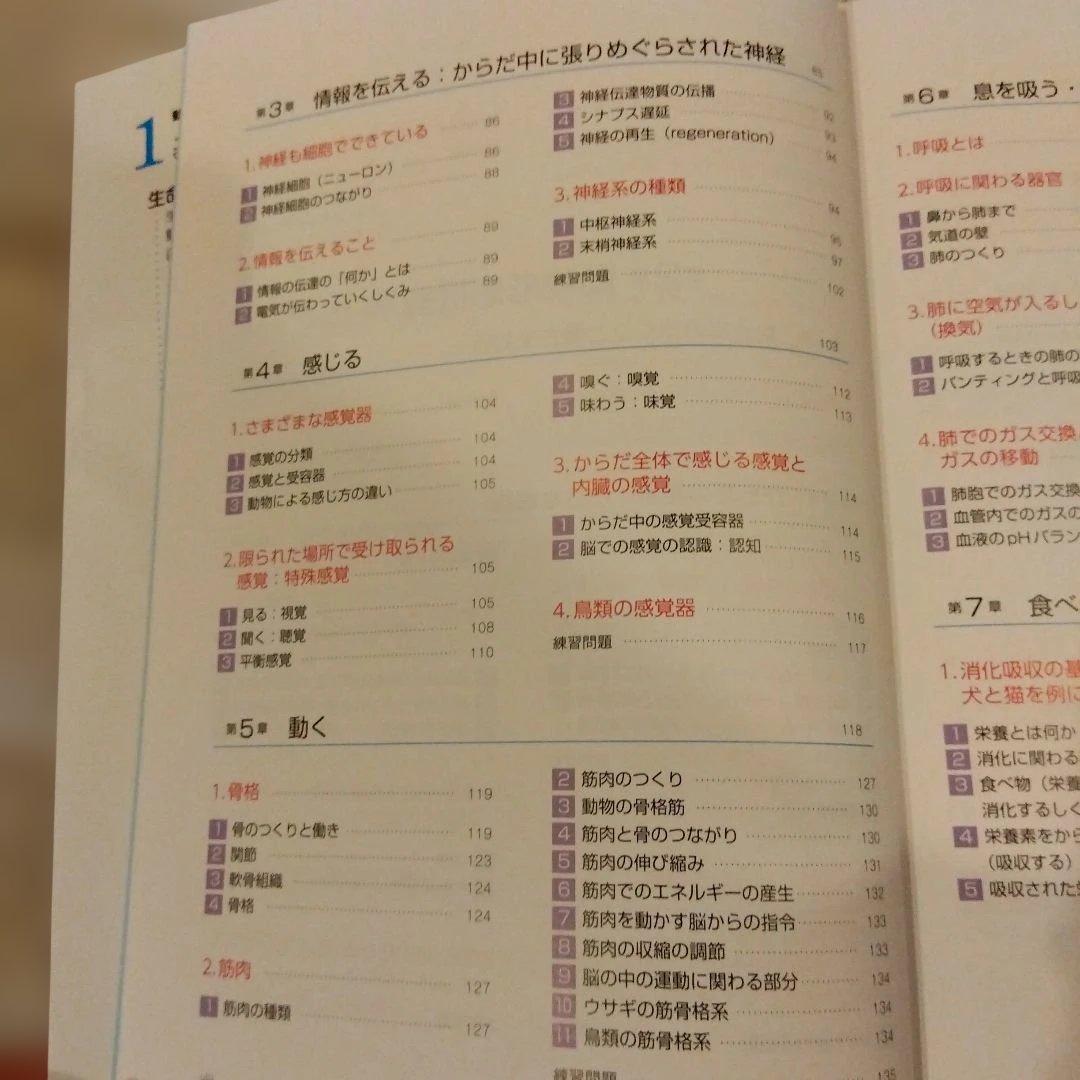 1
第3章 情報を伝える：からだ中に張りめぐらされた神経 85
1.神経も細胞でできている 86
1 神経細胞（ニューロン） 86
2 神経細胞のつながり 88
2.情報を伝えること 89
1 情報の伝達の「何か」とは 89
2 電気が伝わっていくしくみ 89
3 神経伝達物質の伝播 92
4 シナプス遅延 93
5 神経の再生（regeneration） 94
3.神経系の種類 94
1 中枢神経系 95
2 末梢神経系 97
練習問題 102
第4章 感じる 103
1.さまざまな感覚器 104
1 感覚の分類 104
2 感覚と受容器 104
3 動物による感じ方の違い 105
2.限られた場所で受け取られる
感覚：特殊感覚 105
1 見る：視覚 105
2 聞く：聴覚 108
3 平衡感覚 110
4 嗅ぐ：嗅覚 112
5 味わう：味覚 113
3.からだ全体で感じる感覚と
内臓の感覚 114
1 からだ中の感覚受容器 114
2 脳での感覚の認識：認知 115
4.鳥類の感覚器 116
練習問題 117
第5章 動く 118
1.骨格 119
1 骨のつくりと働き 119
2 関節 123
3 軟骨組織 124
4 骨格 124
2.筋肉 127
1 筋肉の種類 127
2 筋肉のつくり 127
3 動物の骨格筋 130
4 筋肉と骨のつながり 130
5 筋肉の伸び縮み 131
6 筋肉でのエネルギーの産生 132
7 筋肉を動かす脳からの指令 133
8 筋肉の収縮の調節 133
9 脳の中の運動に関わる部分 134
10 ウサギの筋骨格系 134
11 鳥類の筋骨格系 134
練習問題 135
第6章 息を吸う・
1.呼吸とは
2.呼吸に関わる器官
1 鼻から肺まで
2 気道の壁
3 肺のつくり
3.肺に空気が入るし
（換気）
1 呼吸するときの肺の
2 パンティングと呼吸
4.肺でのガス交換
ガスの移動
1 肺胞でのガス交換
2 血管内でのガスの
3 血液のpHバラン
第7章 食べ
1.消化吸収の基
犬と猫を例に
1 栄養とは何か
2 消化に関わる
3 食べ物（栄養
消化するしく
4 栄養素をから
（吸収する）
5 吸収された